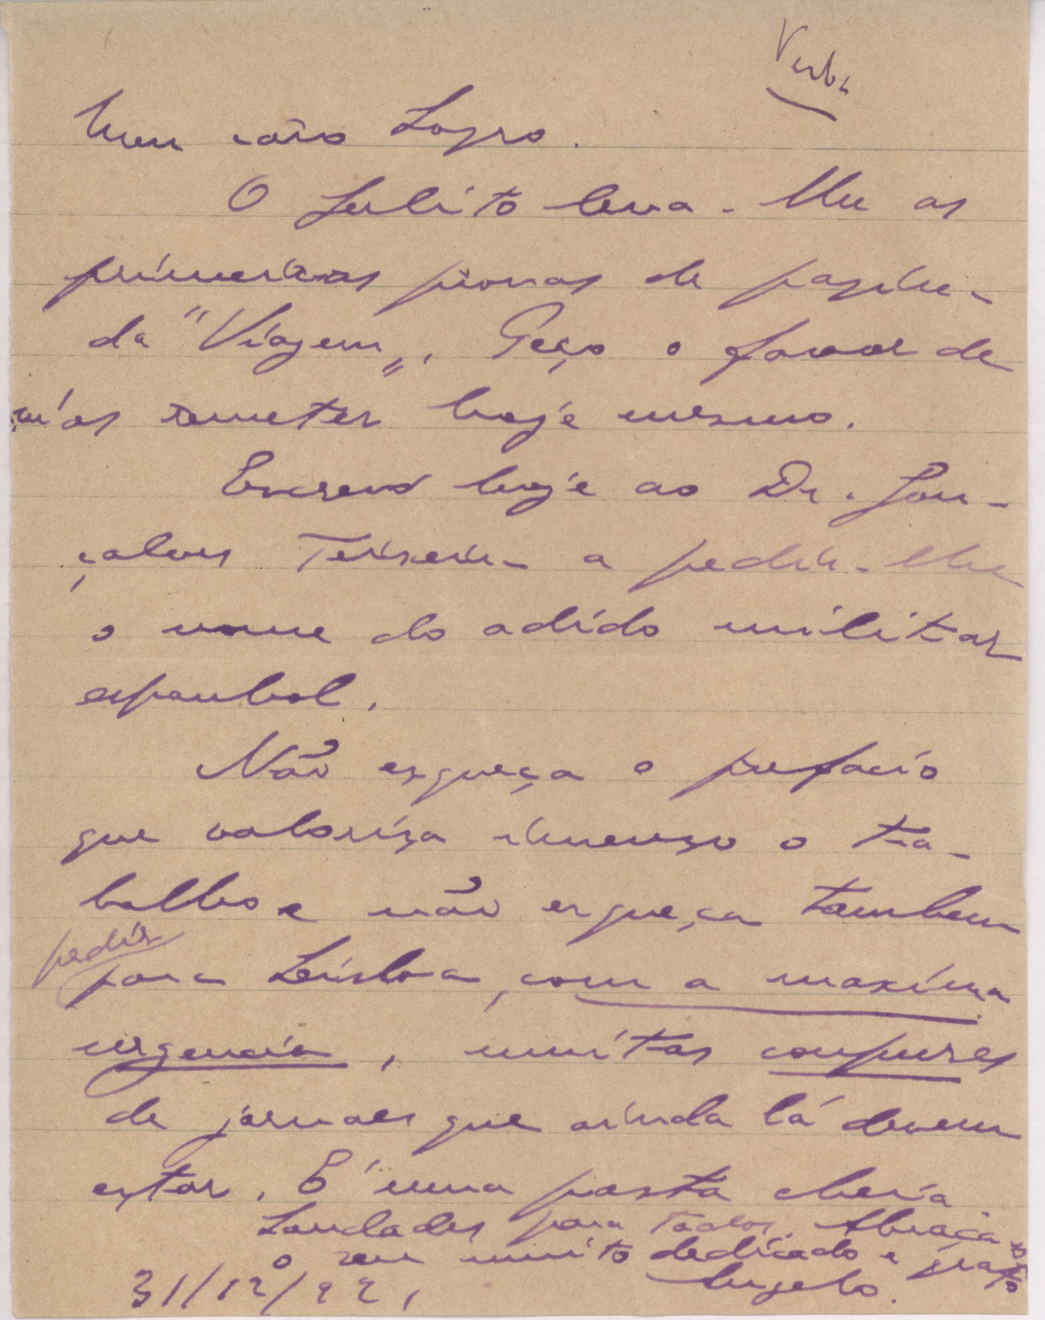 Verba
Meu caro Lopro.
O Julito leva-lhe as
primeiras provas de pagina
da "Viagem". Peço o favor de
m'as remeter hoje mesmo.
Escrevo hoje ao Dr. Gon-
çalves Teixeira a pedir-lhe
o nome do adido militar
espanhol.
Não esqueça o prefacio
que valoriza imenso o tra-
balho e não esqueça tambem
pedir
para Lisboa, com a maxima
urgencia, muitas coupures
de jornaes que ainda lá devem
estar. É uma pasta cheia
Saudades para todos. Abraça-o
o seu muito dedicado e grato
Angelo.
31/12/922,